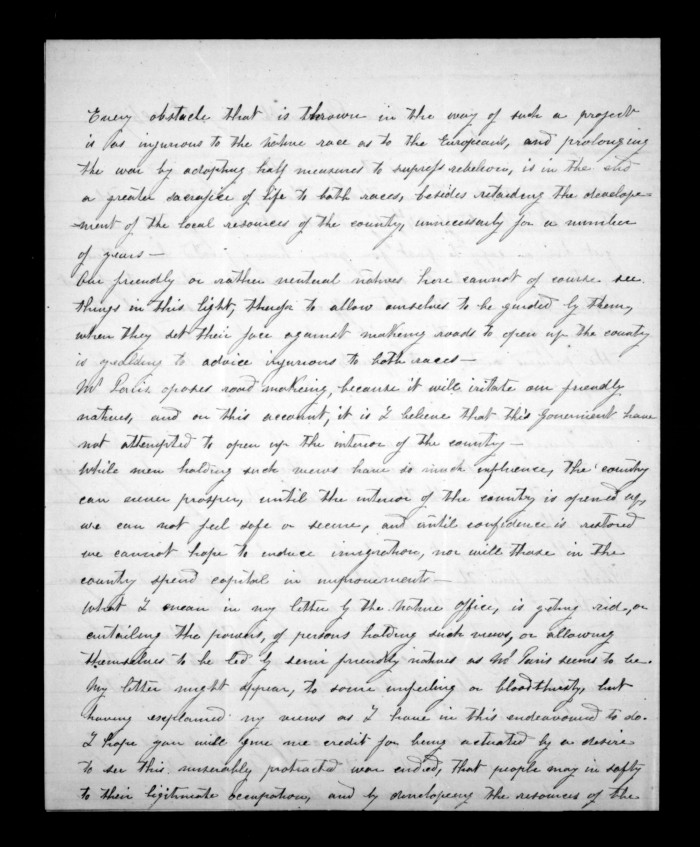 Every obstacle that is thrown in the way of such a project
is as injurious to the native race as to the Europeans, and prolonging
the war by adopting half measures to supress rebelion, is in the end
a greater sacrafice of life to both races, besides retarding the develope-
-ment of the local resources of the country, unnecessarily for a number
of years —
Our friendly or rather neutural natives here cannot of course see
things in this light, therefor to allow ourselves to be guided by them,
when they set their face against making roads to open up the country
is yealding to advice injurious to both races —
Mr Parris oposes road making, because it will iritate our friendly
natives, and on this account, it is I believe that this Goverment have
not attempted to open up the interior of the country —
While men holding such views have so much influence, the country
can never prosper, until the interior of the country is opened up,
we can not feel safe or secure, and until confidence is restored
we cannot hope to induce imigration, nor will those in the
country spend capital in improvements —
What I mean in my letter by the Native Office, is geting rid, or
curtailing the powers, of persons holding such views, or allowing
themselves to be led by semi friendly natives as Mr Parris seems to be.
My letter might appear, to some unfeeling or bloodthirsty, but
having explained my views as I have in this endeavoured to do.
I hope you will give me credit for being actuated by a desire
to see this miserably protracted war ended, that people may in safty
to their ligitimate occupation, and by developeing the resources of the